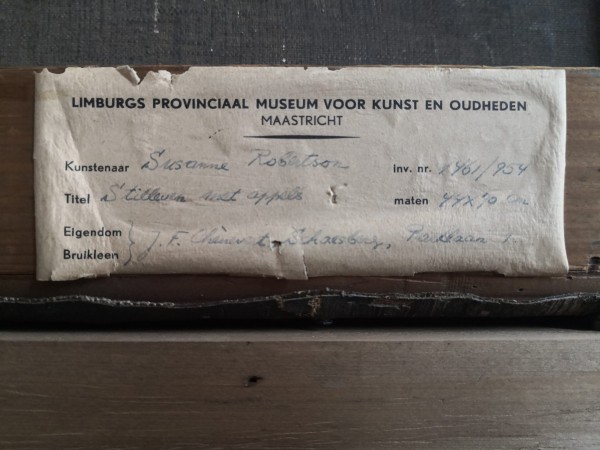 LIMBURGS PROVINCIAAL MUSEUM VOOR KUNST EN OUDHEDEN
MAASTRICHT
Kunstenaar Susanne Robertson Inv. nr. 1961/954
Titel Stilleven met appels maten cm
Eigendom
Bruikleen } J. F. Schaesberg, Parklaan